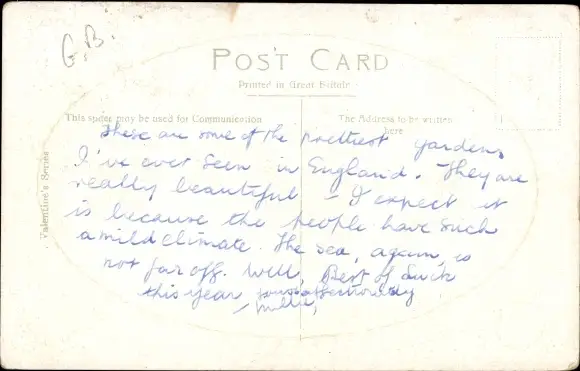 G.B.
POST CARD
Printed in Great Britain
This side may be used for Communication
The Address to be written
here
Valentine's Series
These are some of the prettiest gardens
I've ever seen in England. They are
really beautiful - I expect it
is because the people have such
a mild climate. The sea, again, is
not far off. Well, Best of Luck
this year yours affectionately
- Millie,